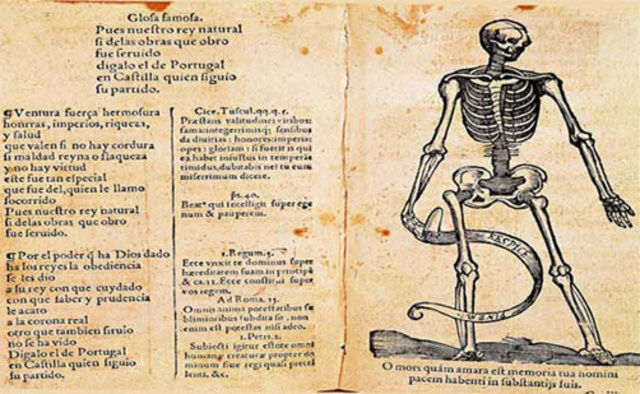 Glosa famosa.
Pues nuestro rey natural
si delas obras que obro
fue seruido
digalo el de Portugal
en Castilla quien siguio
su partido.
¶ Ventura fuerça hermosura
honrras, imperios, riquezas,
y salud
que valen si no hay cordura
si maldad reyna o flaqueza
y no hay virtud
este fue tan especial
que fue del, quien le llamo
socorrido
Pues nuestro rey natural
si delas obras que obro
fue seruido.
¶ Por el poder q̃ ha Dios dado
ha los reyes la obediencia
se les dio
a su rey con que cuydado
con que saber y prudencia
le acato
a la corona real
otro que tambien siruio
no se ha vido
Digalo el de Portugal
en Castilla quien siguio
su partido.
Cice. Tuscul. qq. q. 5.
Præstans valitudine: viribus:
fama: integerrimisq; sensibus
da diuitias: honores: imperia:
opes: gloriam: si fuerit is qui
ex habet iniustus in temperãs
timidus, dubitabis ne tu eum
miserrimum dicere.
ps. 40.
Beatꝰ qui intelligit super ege
num & pauperem.
1. Regum. 5.
Ecce vnxit te dominus super
hæreditatem suam in
& ca. 12. Ecce constituit super
vos regem.
Ad Roma. 13.
Omnis anima potestatibus su
blimioribus subdita sit, non
enim est potestas nisi adeo.
1. Petri. 2.
Subiecti igitur estote omni
humanæ creaturæ propter do
minum siue regi quasi precel
lenti, &c.
RESPICE
O mors quám amara est memoria tua homini
pacem habenti in substantijs suis.